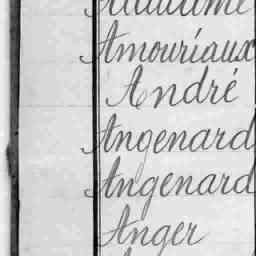 Amouriaux
André
Angenard
Angenard
Anger